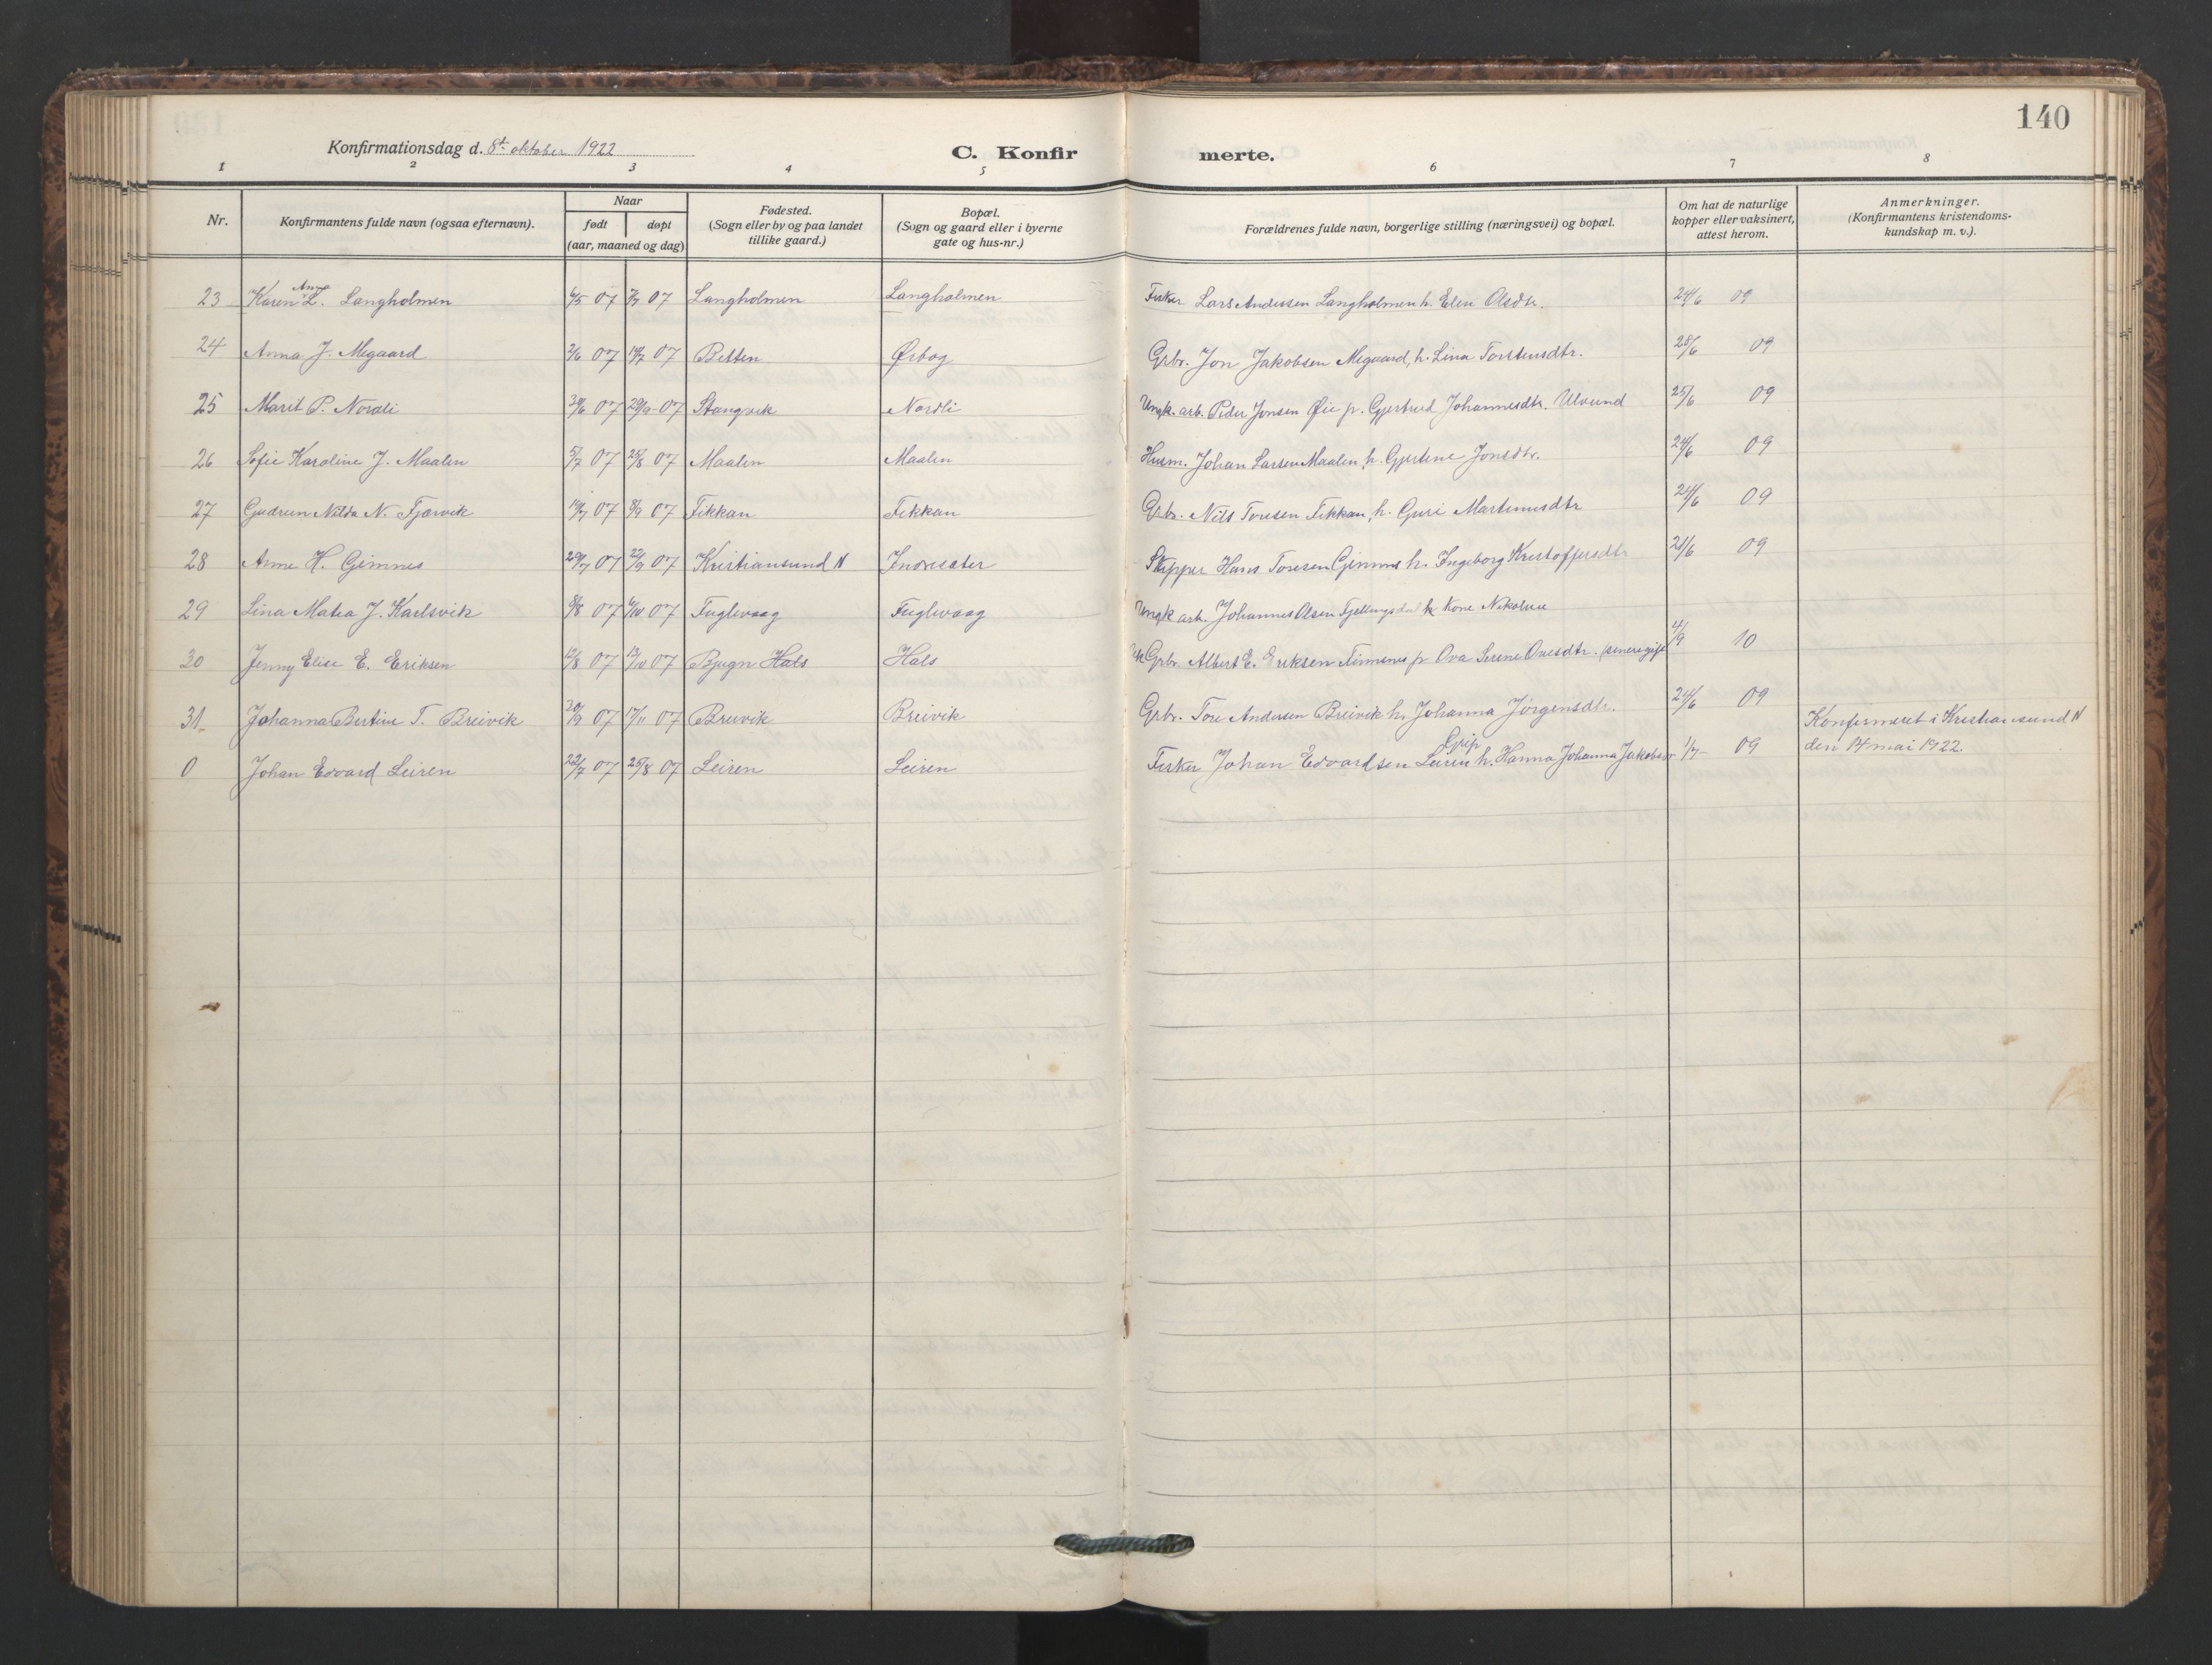 140
Konfirmationsdag d. 8de oktober 1922
C. Konfir merte.
1 2 3 4 5 6 7 8
Nr.
Konfirmantens fulde navn (ogsaa efternavn).
Naar
født døpt
(aar, maaned og dag)
Fødested.
(Sogn eller by og paa landet
tillike gaard.)
Bopæl.
(Sogn og gaard eller i byerne
gate og hus-nr.)
Forældrenes fulde navn, borgerlige stilling (næringsvei) og bopæl.
Om hat de naturlige
kopper eller vaksinert,
attest herom.
Anmerkninger.
(Konfirmantens kristendoms-
kundskap m. v.).
23 Karen Anna L. Langholmen 6/5 07 7/7 07 Langholmen Langholmen Fisker Lars Andersen Langholmen h. Elen Olsdtr. 24/6 09
24 Anna J. Megaard 2/6 07 14/7 07 Betten Ørbog Grbr. Jon Jakobsen Megaard, h. Lina Torstensdtr. 28/6 09
25 Marit P. Nordli 30/6 07 29/9 07 Stangvik Nordli Ungk. arb. Peder Jonsen Øie p. Gjertrud Johannesdtr. Ulvund 25/6 09
26 Sofie Karoline J. Maalen 5/7 07 25/8 07 Maalen Maalen Husm. Johan Larsen Maalen, h. Gjertine Jonsdtr. 24/6 09
27 Gudrun Nilda N. Tjørvik 07 8/9 07 Fikkan Fikkan Grbr. Nils Toresen Fikkan, h. Guri Martinusdtr 24/6 09
28 Anne H. Gimnes 29/7 07 22/9 07 Kristiansund N Indresæter Skipper Hans Toresen Gimnes h. Ingeborg Kristoffersdtr 24/6 09
29 Lina Matea J. Karlsvik 8/8 07 6/10 07 Fuglevaag Fuglevaag Ungk arb. Johannes Olsen h Kone Nikoline
30 Jenny Elise E. Eriksen 12/8 07 13/10 07 Bjugn Hals Hals Grbr. Albert E. Eriksen Finnsnes p Ova Serene Ovesdtr. (senere gift 4/9 10
31 Johanna Bertine T. Breivik 30/9 07 17/11 07 Breivik Breivik Grbr. Tore Andersen Breivik h. Johanna Jørgensdtr. 24/6 09
0 Johan Edvard Leiren 22/7 07 25/8 07 Leiren Leiren Fisker Johan Edvardsen Grip Leiren h. Hanna Johanna Jakobsdtr 1/7 09 Konfirmeret i Kristiansund N
den 14 mai 1922.